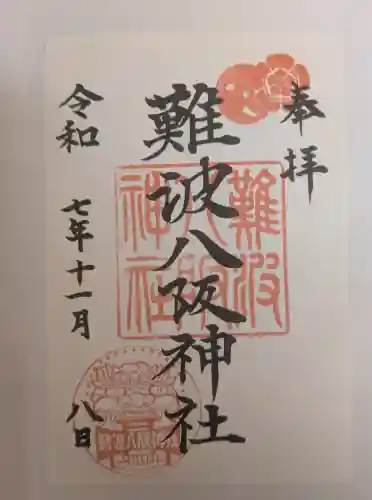 奉拝
難波八阪神社
難波八阪神社
令和
七年十一月
八日